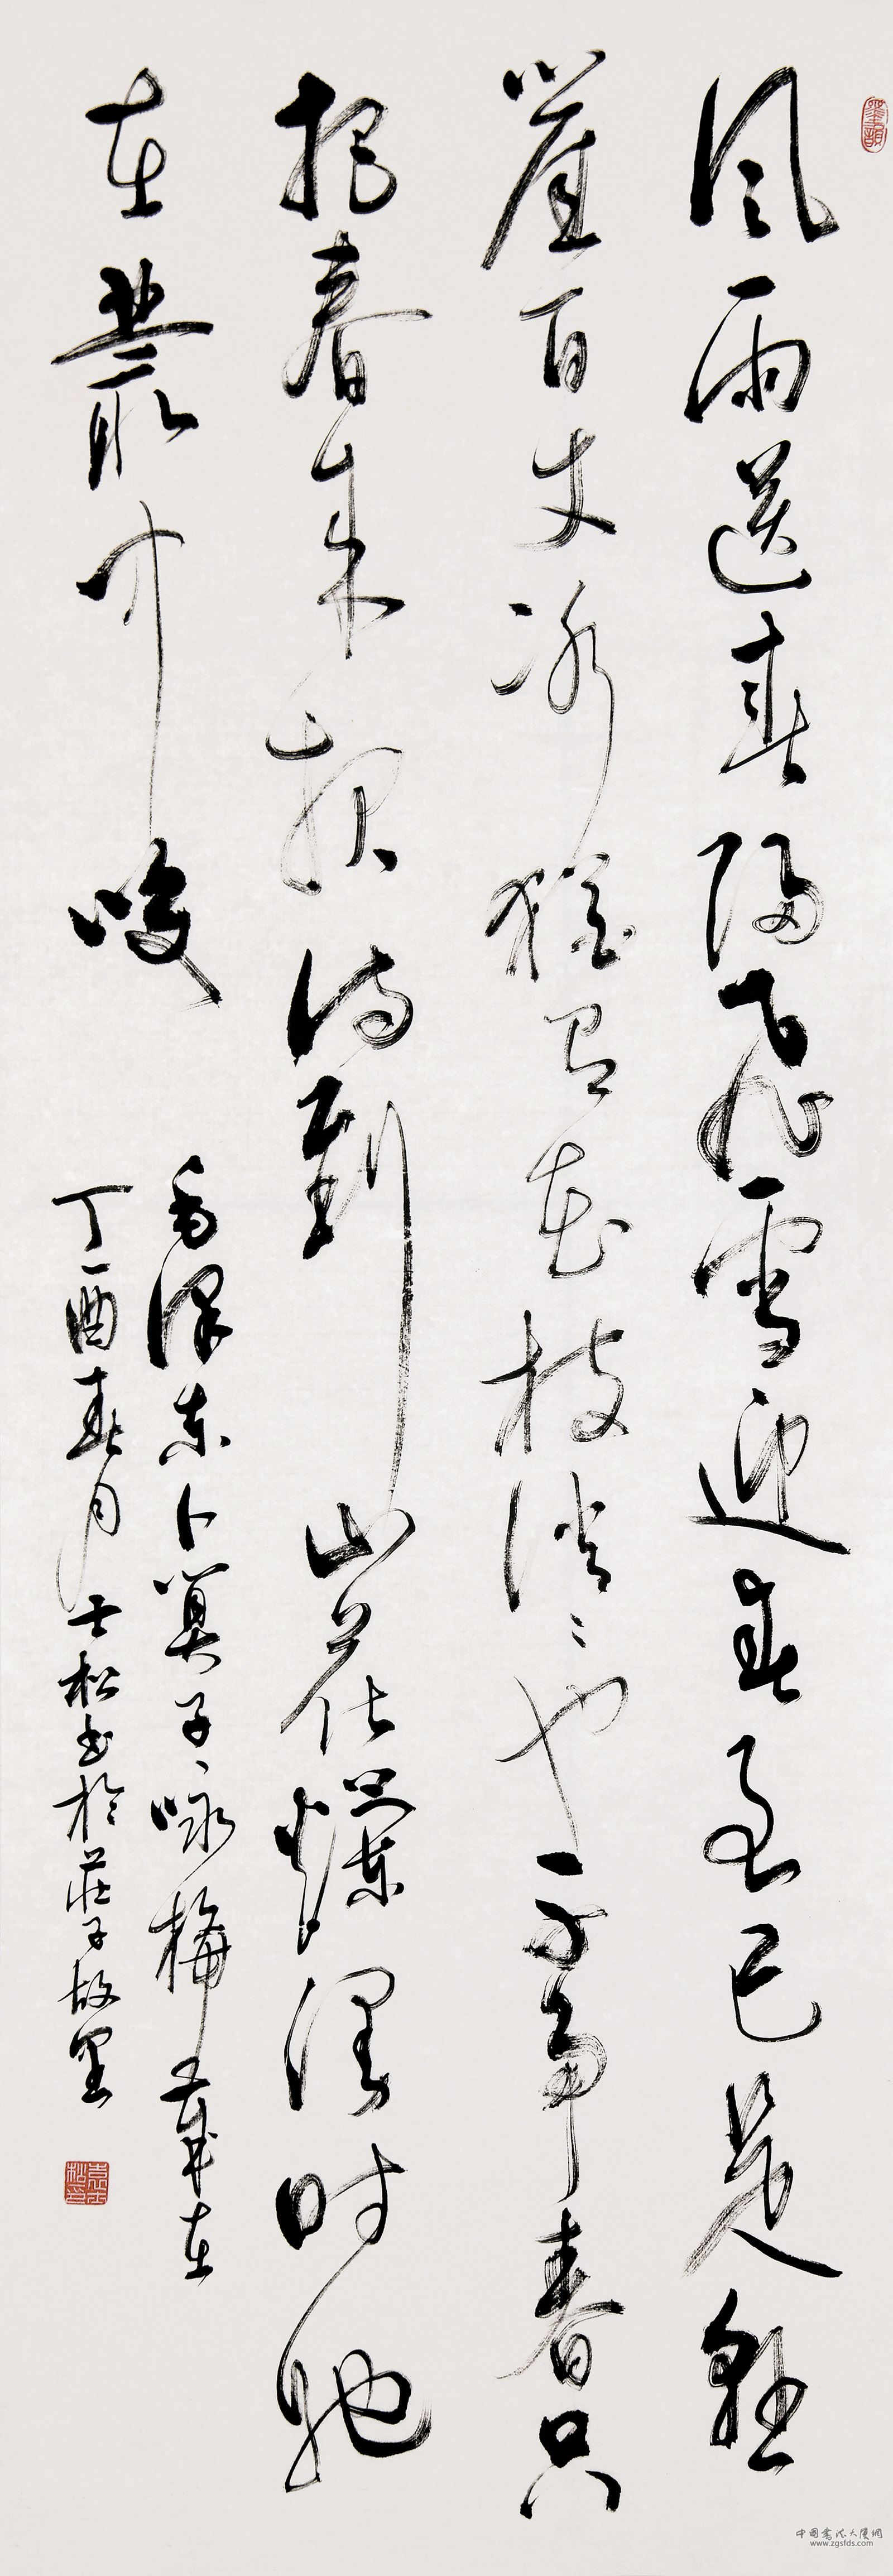 墨韻
風雨送春歸飛雪迎春到已是懸
崖百丈冰猶有花枝俏々也不爭春只
把春來報待到山花爛漫時她
在叢中咲
毛澤東卜算子咏梅歲在
丁酉春月士松書於莊子故里
www.zgsfds.com